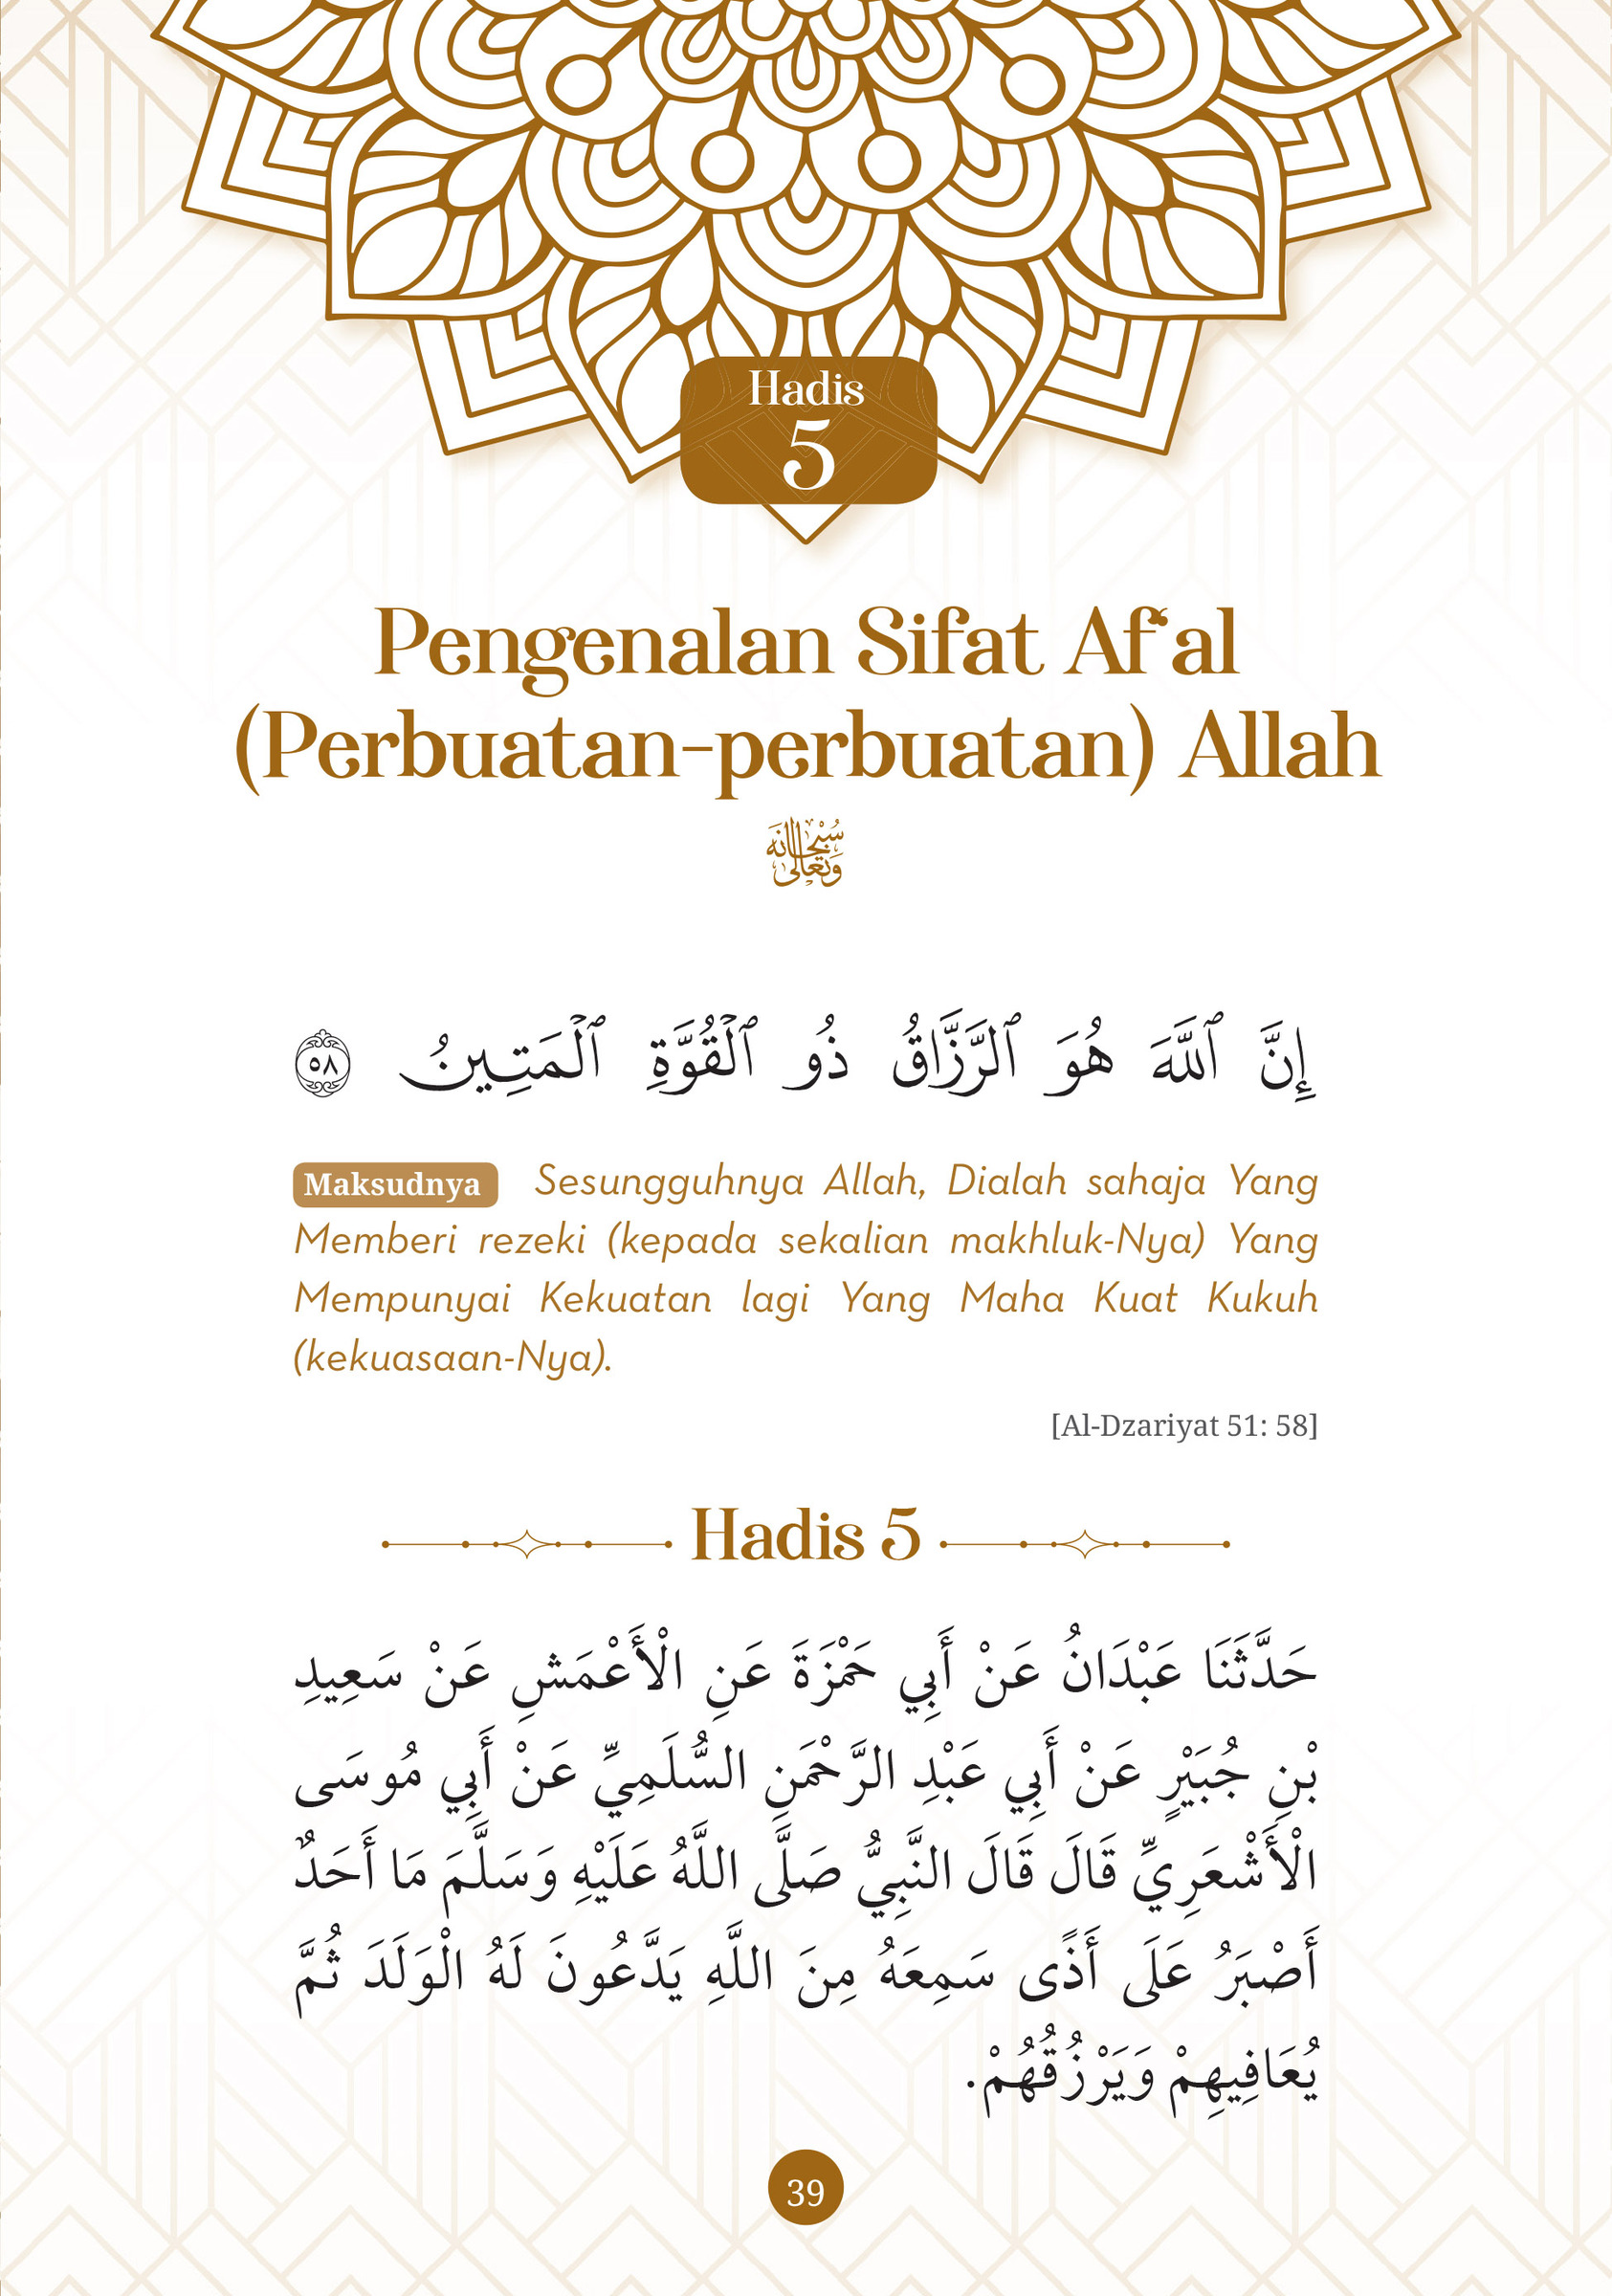 Hadis
5
Pengenalan Sifat Af‘al
(Perbuatan-perbuatan) Allah
سُبْحَانَهُ وَتَعَالَى
إِنَّ ٱللَّهَ هُوَ ٱلرَّزَّاقُ ذُو ٱلْقُوَّةِ ٱلْمَتِينُ ٥٨
Maksudnya Sesungguhnya Allah, Dialah sahaja Yang
Memberi rezeki (kepada sekalian makhluk-Nya) Yang
Mempunyai Kekuatan lagi Yang Maha Kuat Kukuh
(kekuasaan-Nya).
[Al-Dzariyat 51: 58]
Hadis 5
حَدَّثَنَا عَبْدَانُ عَنْ أَبِي حَمْزَةَ عَنِ الْأَعْمَشِ عَنْ سَعِيدِ
بْنِ جُبَيْرٍ عَنْ أَبِي عَبْدِ الرَّحْمَنِ السُّلَمِيِّ عَنْ أَبِي مُوسَى
الْأَشْعَرِيِّ قَالَ قَالَ النَّبِيُّ صَلَّى اللَّهُ عَلَيْهِ وَسَلَّمَ مَا أَحَدٌ
أَصْبَرُ عَلَى أَذًى سَمِعَهُ مِنَ اللَّهِ يَدَّعُونَ لَهُ الْوَلَدَ ثُمَّ
يُعَافِيهِمْ وَيَرْزُقُهُمْ.
39